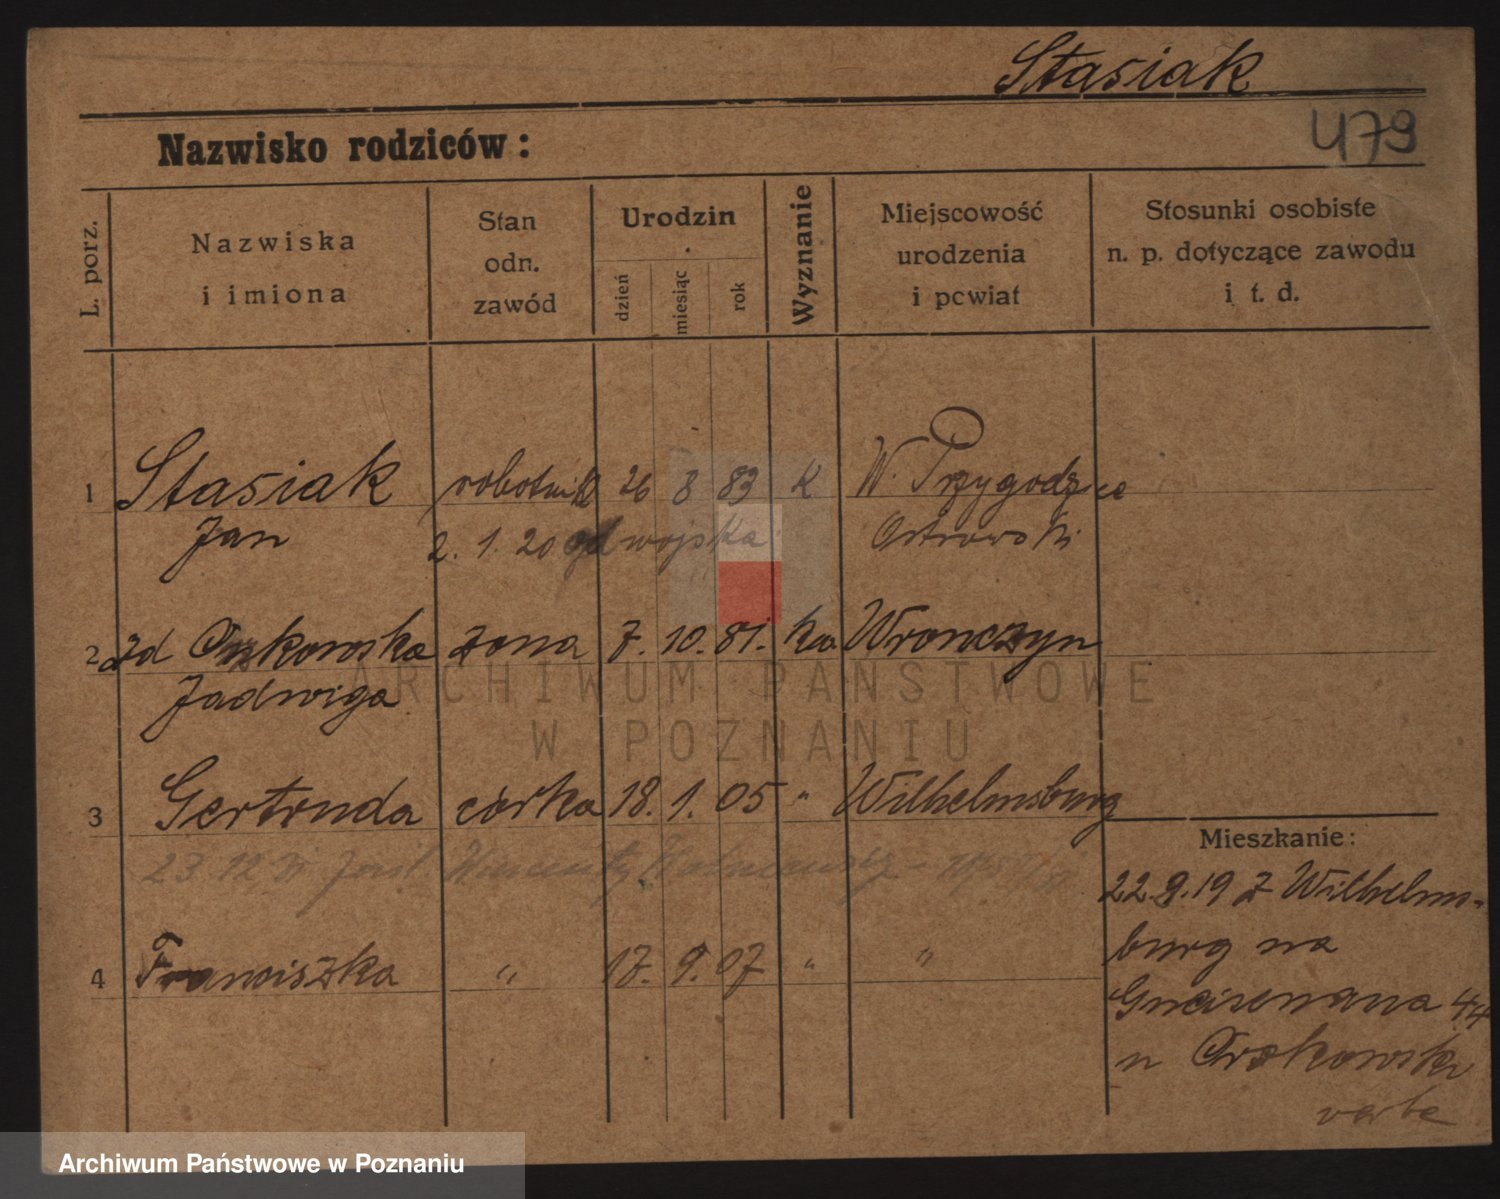 Stasiak
479
Nazwisko rodziców:
L. porz.
Nazwiska
i imiona
Stan
odn.
zawód
Urodzin
dzień
miesiąc
rok
Wyznanie
Miejscowość
urodzenia
i powiat
Stosunki osobiste
n. p. dotyczące zawodu
i t. d.
1 Stasiak robotnik 26 8 83 k W. Przygodzice
Jan 2. 1. 20 od wojska Ostrowski
2 zd żona 7. 10. 81. ka Wronczyn
Jadwiga
3 Gertruda córka 18. 1. 05 " Wilhelmsburg
23 12
4 Franciszka " 17. 9. 07 " "
Mieszkanie:
22.9.19 z Wilhelms-
burg na
Gneisenaua 44
u
verte
ARCHIWUM PAŃSTWOWE
W POZNANIU
Archiwum Państwowe w Poznaniu